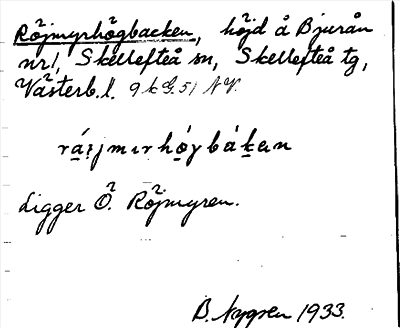 Röjmyrhögbacken, höjd å Bjurån
nr 1, Skellefteå sn, Skellefteå tg,
Västerb. l. 9 k G. 51 NV.
Ligger Ö. Röjmyren.
B. Nygren 1933.